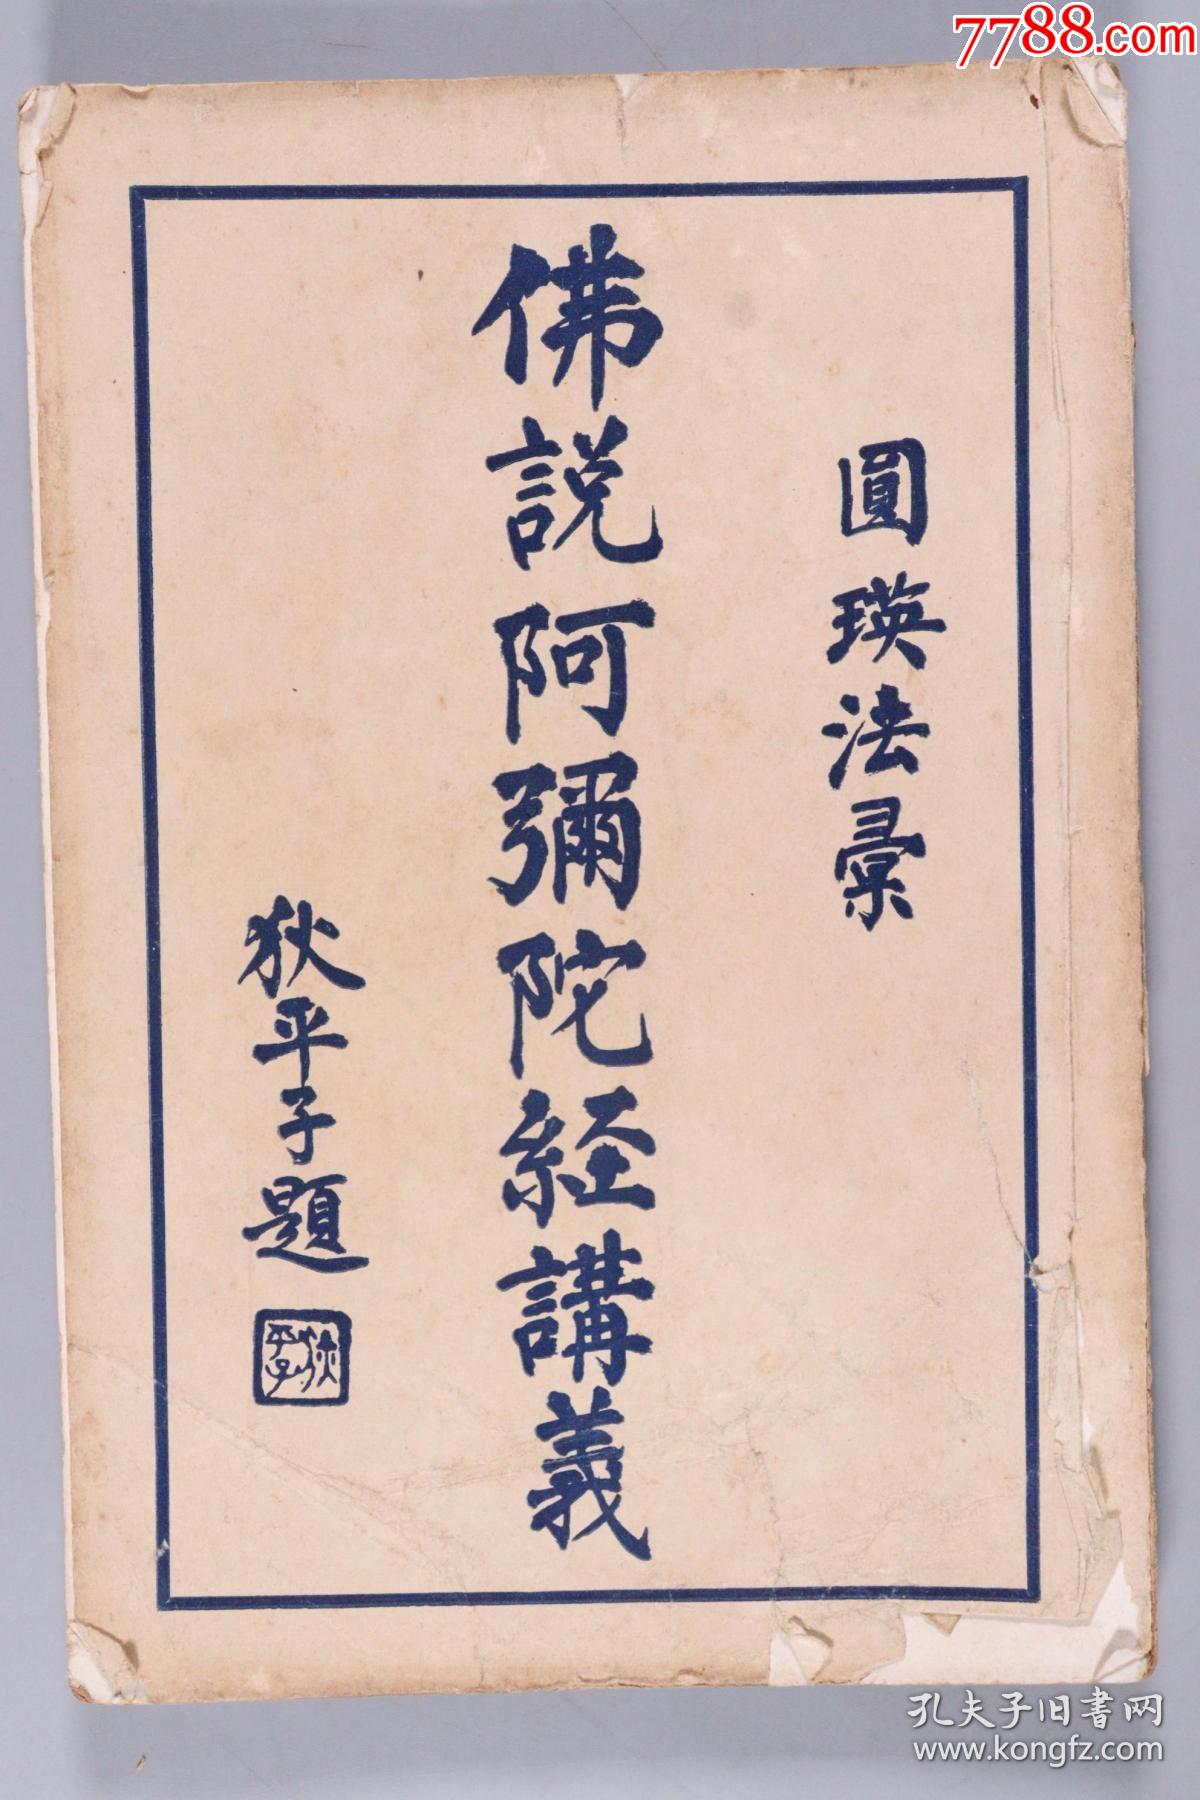 7788.com
圓瑛法彙
佛說阿彌陀經講義
狄平子題
狄平子
孔夫子旧书网
www.kongfz.com